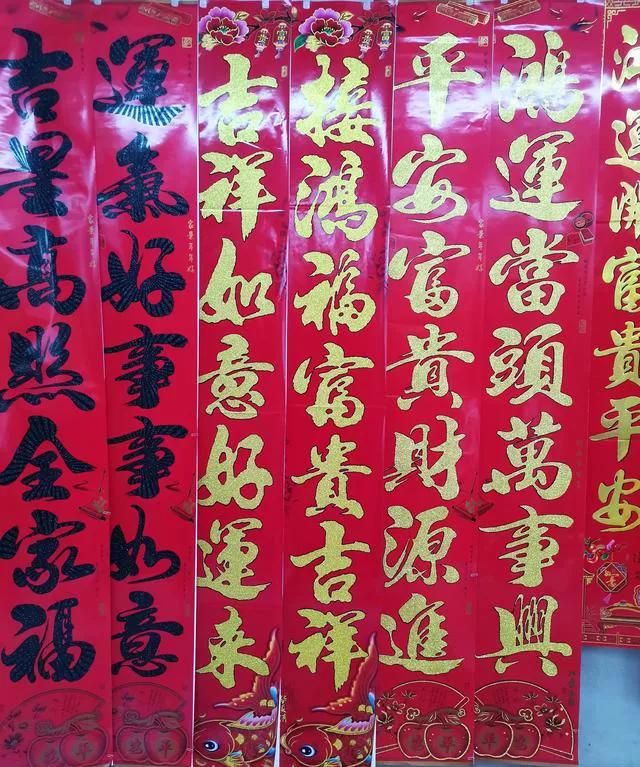 運開富貴平安
鴻運當頭萬事興
平安富貴財源進
接鴻福富貴吉祥
吉祥如意好運来
運氣好事事如意
吉星高照全家福